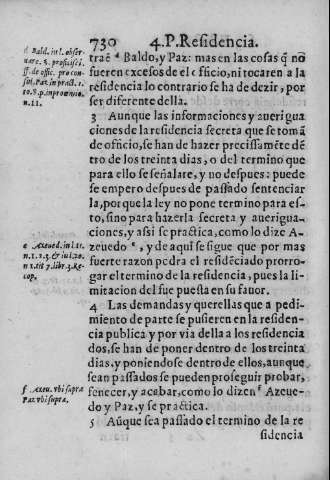 730 4.P.Residencia.
traẽ ᵈ Baldo, y Paz: mas en las cosas q̃ nõ
fueren excesos de el officio, ni tocaren a la
residencia lo contrario se ha de dezir, por
ser diferente della.
3 Aunque las informaciones y aueriguaciones
ciones de la residencia secreta que se tomã
de officio, se han de hazer precissamẽte dẽ
tro de los treinta dias, o del termino que
para ello se señalare, y no despues: puede
se empero despues de passado sentenciar
la, porque la ley no pone termino para es-
to, sino para hazerla secreta y auerigua-
ciones, y assi se practica, como lo dize A-
zeuedo ᵉ, y de aqui se sigue que por mas
fuerte razon podra el residẽciado prorro-
gar el termino de la residencia, pues la li-
mitacion del fue puesta en su fauor.
4 Las demandas y querellas que a pedi-
miento de parte se pusieren en la residen-
cia publica y por via della a los residencia
dos, se han de poner dentro de los treinta
dias, y poniendose dentro de ellos, aunque
sean passados se pueden proseguir probar,
fenecer, y acabar, como lo dizen ᶠ Azeue-
do y Paz, y se practica.
5 Aũque sea passado el termino de la re
sidencia
d Bald. in l. obser
uare. §. proficisci
ff. de offic. pro con-
sul. Paz in pract. 1.
n. 11.
e Azeued. in l. 21.
Recop.
f Azeu. vbi supra
Paz vbi supra.